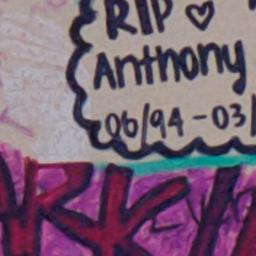 RIP ♡
Anthony
06/94 - 03/